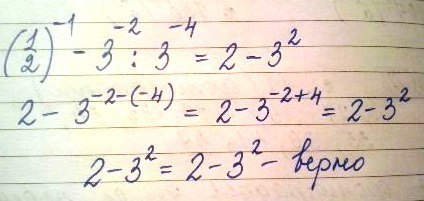 (1/2)⁻¹ - 3⁻² : 3⁻⁴ = 2 - 3²
2 - 3⁻²⁻⁽⁻⁴⁾ = 2 - 3⁻²⁺⁴ = 2 - 3²
2 - 3² = 2 - 3² - верно